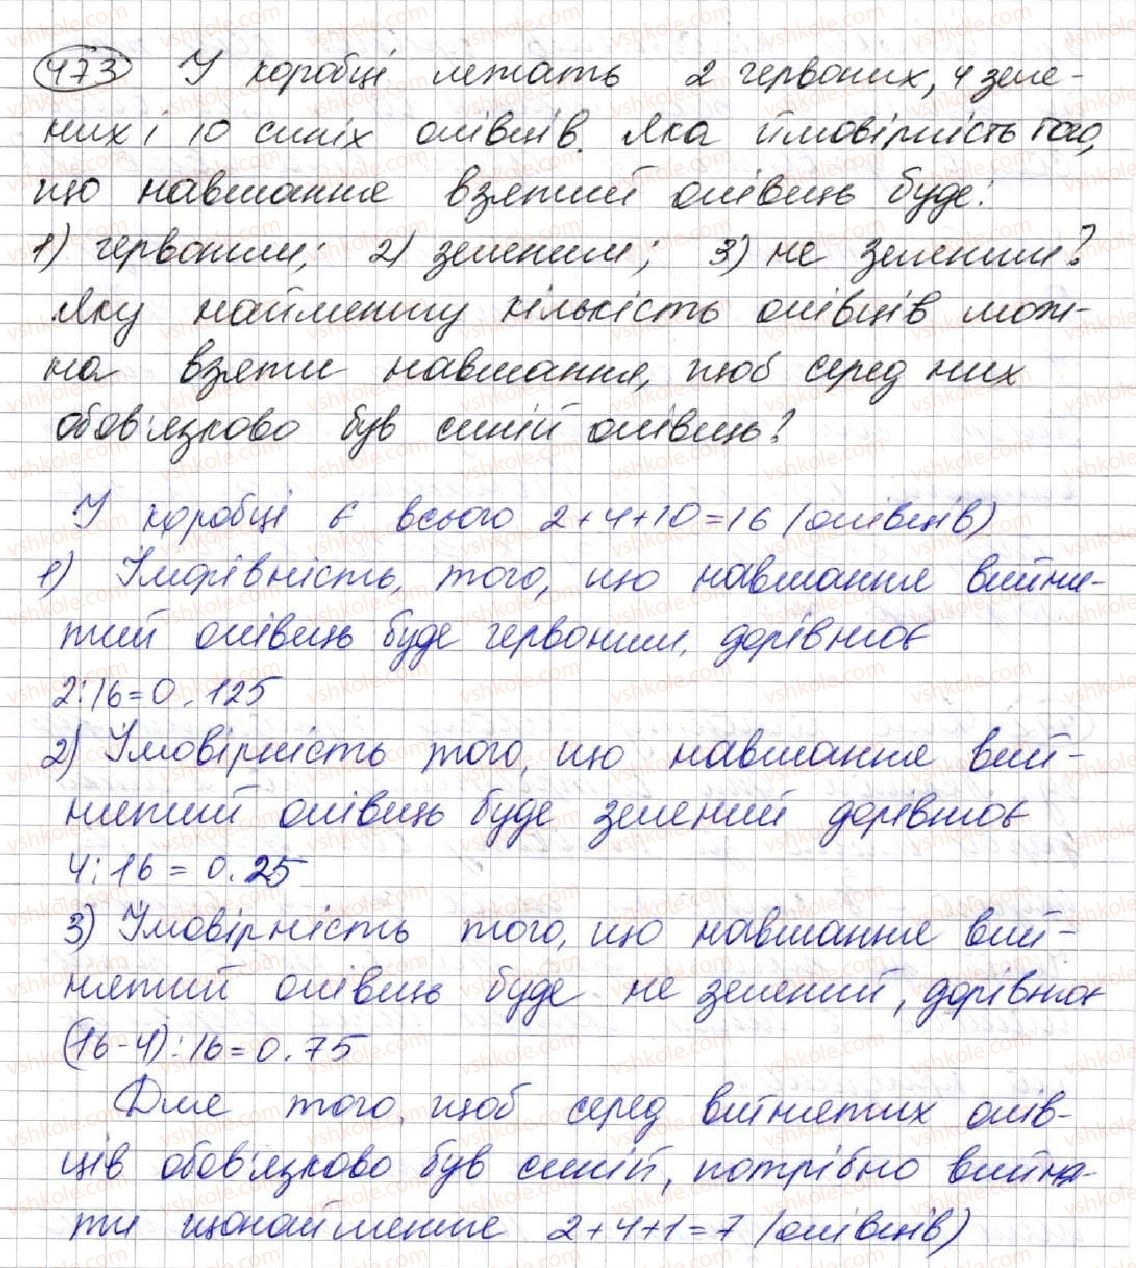 473 У коробці лежать 2 червоних, 4 зеле-
них і 10 синіх олівців. Яка ймовірність того,
що навмання взятий олівець буде:
1) червоним; 2) зеленим; 3) не зеленим?
Яку найменшу кількість олівців мож-
на взяти навмання, щоб серед них
обов'язково був синій олівець?
У коробці є всього 2+4+10=16 (олівців)
1) Імовірність, того, що навмання вийня-
тий олівець буде червоним, дорівнює
2:16=0.125
2) Імовірність того, що навмання вий-
нятий олівець буде зелений дорівнює
4:16=0.25
3) Імовірність того, що навмання вий-
нятий олівець буде не зелений, дорівнює
(16-4):16=0.75
Для того, щоб серед вийнятих олів-
ців обов'язково був синій, потрібно вийня-
ти щонайменше 2+4+1=7 (олівців)